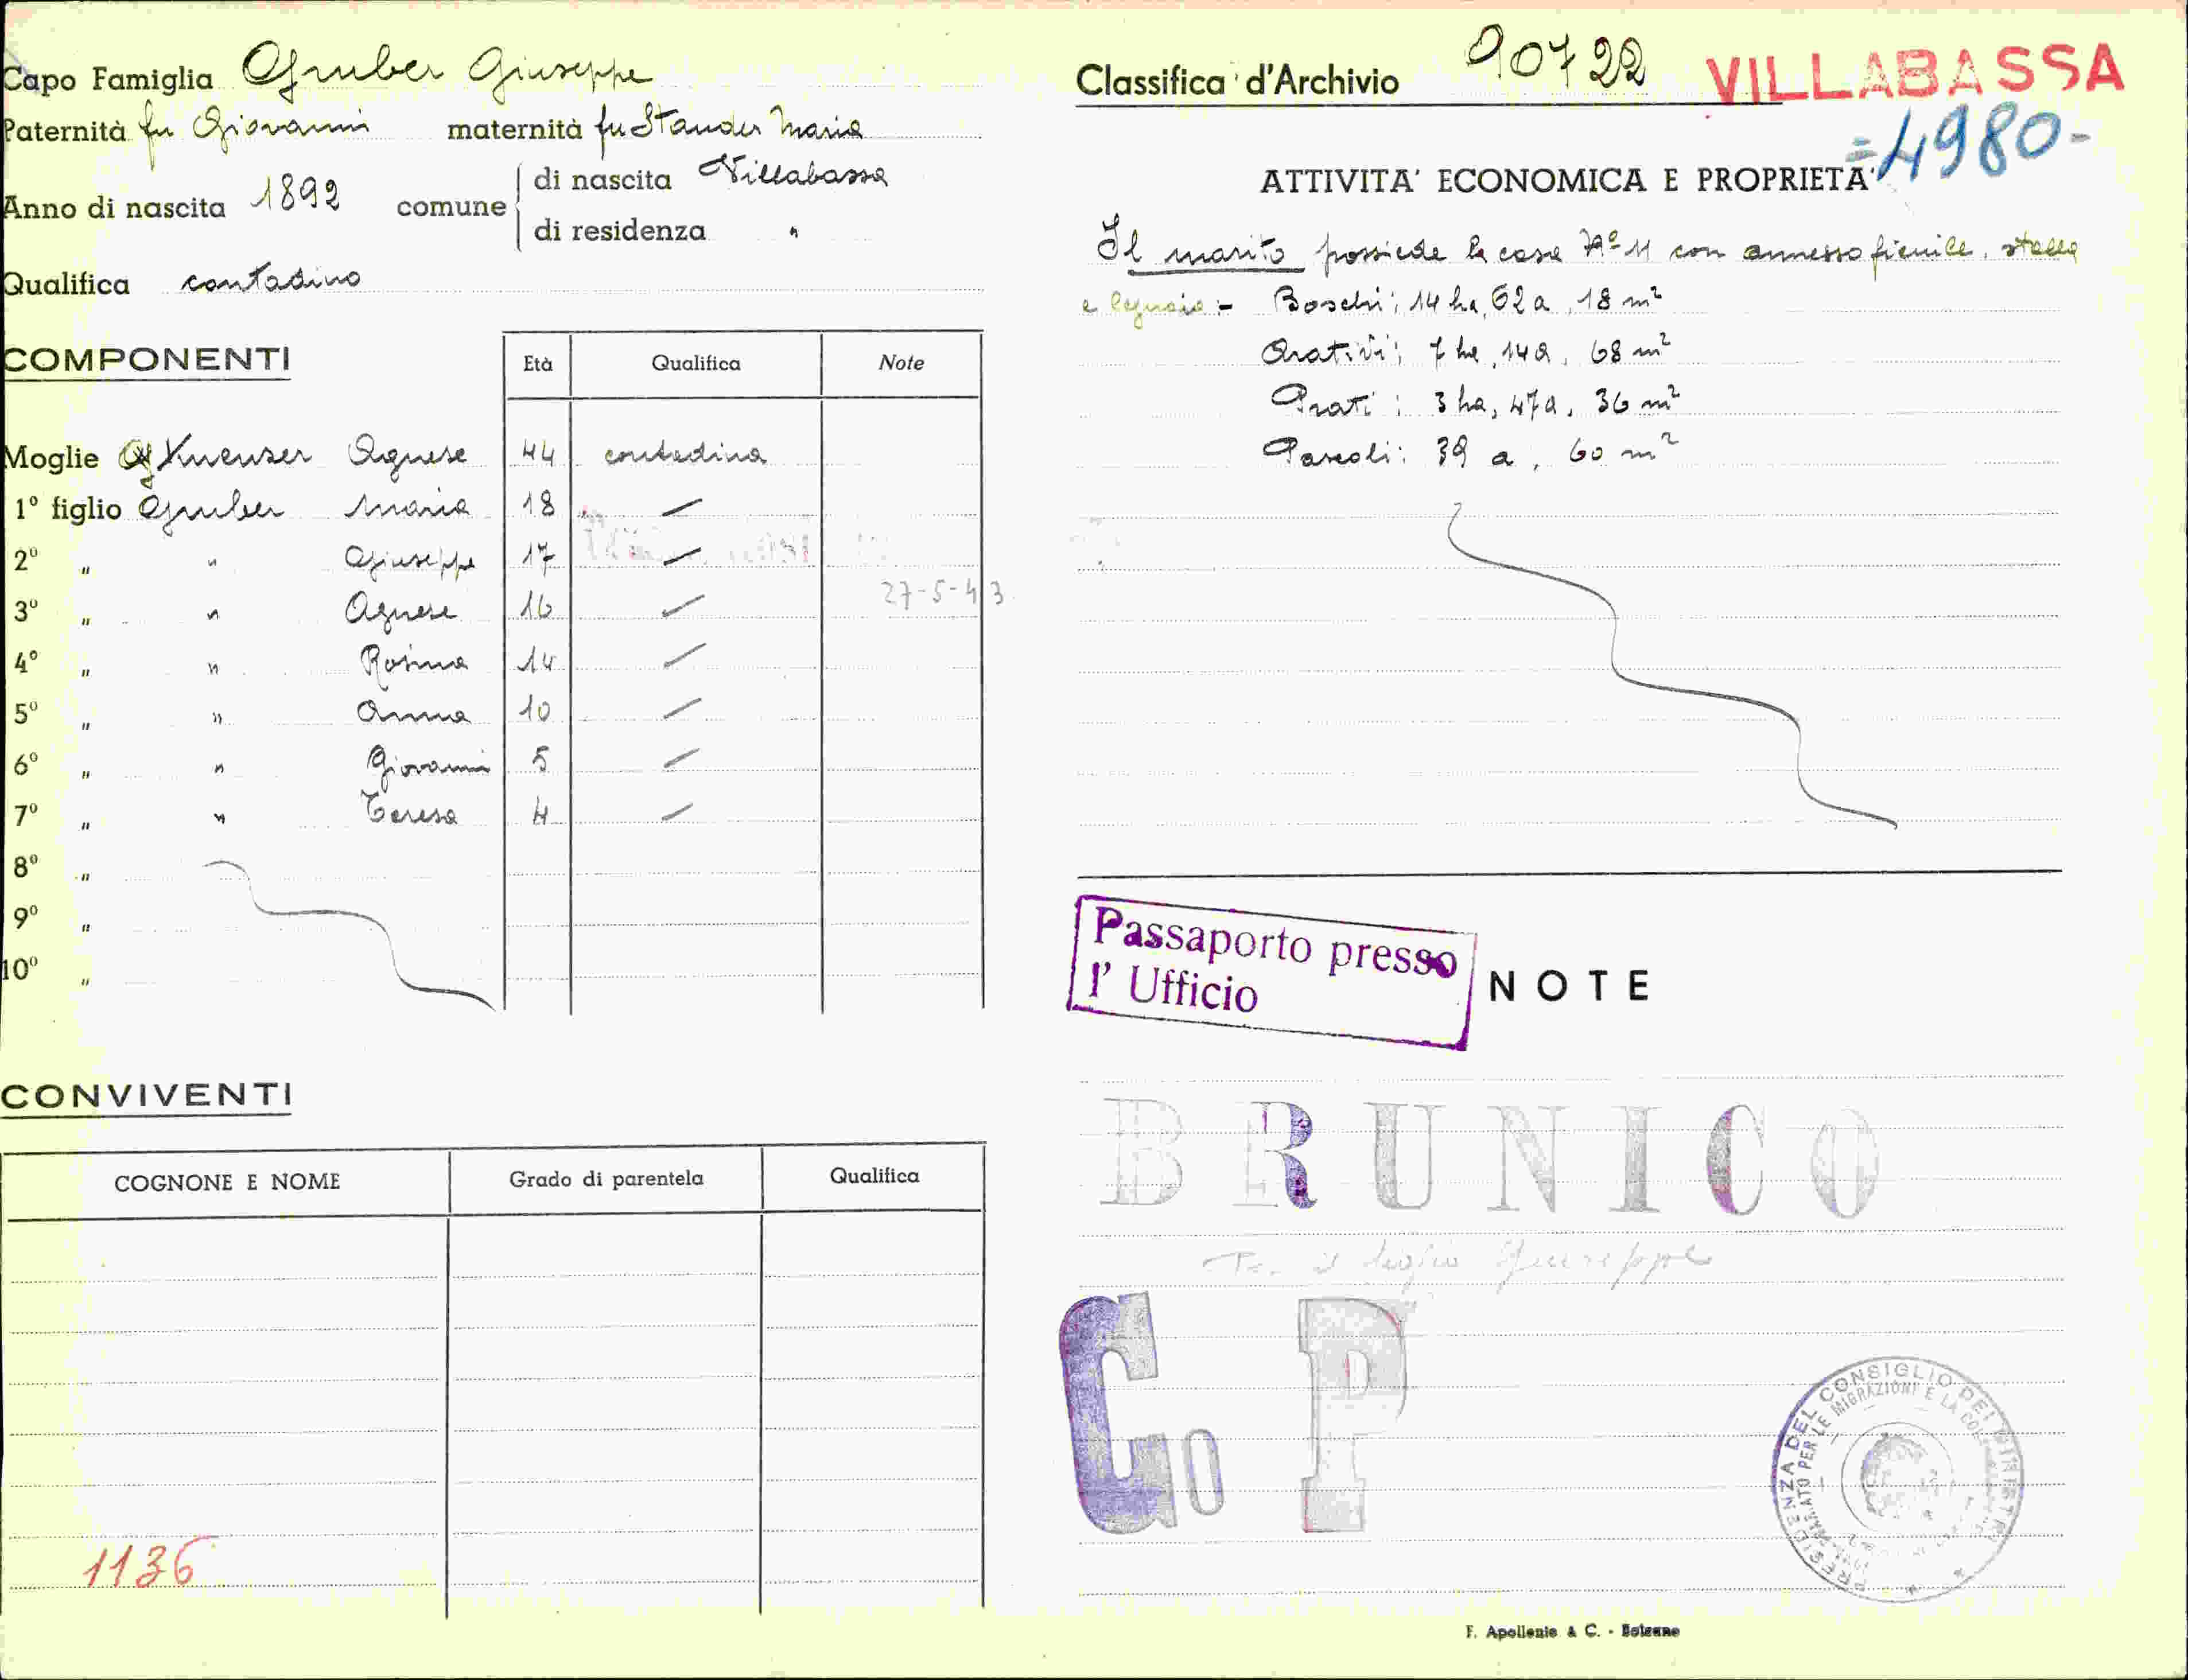 Capo Famiglia Gruber Giuseppe
Paternità fu Giovanni maternità fu Stauder Maria
Anno di nascita 1892 comune di nascita Villabassa
di residenza "
Qualifica contadino
COMPONENTI Età Qualifica Note
Moglie Agnese 44 contadina
1º figlio Gruber Maria 18 —
2º " " Giuseppe 17 —
27-5-43
3º " " Agnese 16 —
4º " " Rosina 14 —
5º " " Anna 10 —
6º " " Giovanni 5 —
7º " " Teresa 4 —
8º "
9º "
10º "
CONVIVENTI
COGNONE E NOME Grado di parentela Qualifica
1136
Classifica d'Archivio 90722 VILLABASSA
=4980-
ATTIVITA' ECONOMICA E PROPRIETA'
Il marito possiede la casa Nº 11 con annesso fienile, stalla
e legnaia :- Boschi: 14 ha, 62 a, 18 m²
Arativi: 7 ha, 14 a, 68 m²
Prati: 3 ha, 47 a, 36 m²
Pascoli: 39 a, 60 m²
Passaporto presso
l' Ufficio
NOTE
BRUNICO
il Giuseppe
Go P
PRESIDENZA DEL CONSIGLIO DEI MINISTRI
PER LE MIGRAZIONI E LA
F. Apollonio & C. - Bolzano